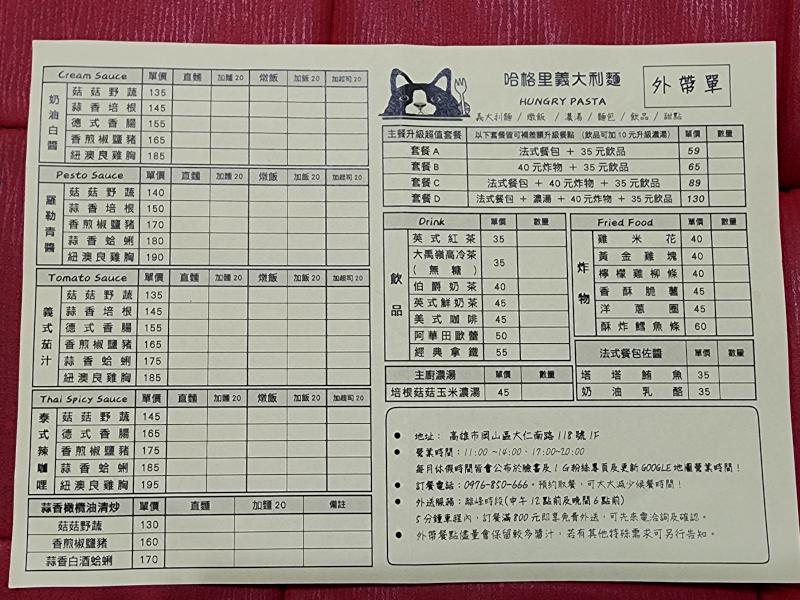 哈格里義大利麵
HUNGRY PASTA
外帶單
義大利麵 / 燉飯 / 濃湯 / 麵包 / 飲品 / 甜點
Cream Sauce 單價 直麵 加麵 20 燉飯 加飯 20 加起司 20
奶油白醬
菇菇野蔬 135
蒜香培根 145
德式香腸 155
香煎椒鹽豬 165
紐澳良雞胸 185
Pesto Sauce 單價 直麵 加麵 20 燉飯 加飯 20 加起司 20
羅勒青醬
菇菇野蔬 140
蒜香培根 150
香煎椒鹽豬 170
蒜香蛤蜊 180
紐澳良雞胸 190
Tomato Sauce 單價 直麵 加麵 20 燉飯 加飯 20 加起司 20
義式茄汁
菇菇野蔬 135
蒜香培根 145
德式香腸 155
香煎椒鹽豬 165
蒜香蛤蜊 175
紐澳良雞胸 185
Thai Spicy Sauce 單價 直麵 加麵 20 燉飯 加飯 20 加起司 20
泰式辣咖哩
菇菇野蔬 145
德式香腸 165
香煎椒鹽豬 175
蒜香蛤蜊 185
紐澳良雞胸 195
蒜香橄欖油清炒 單價 直麵 加麵 20 備註
菇菇野蔬 130
香煎椒鹽豬 160
蒜香白酒蛤蜊 170
主餐升級超值套餐 以下套餐皆可補差額升級餐點 (飲品可加 10 元升級濃湯) 單價 數量
套餐 A 法式餐包 + 35 元飲品 59
套餐 B 40 元炸物 + 35 元飲品 65
套餐 C 法式餐包 + 40 元炸物 + 35 元飲品 89
套餐 D 法式餐包 + 濃湯 + 40 元炸物 + 35 元飲品 130
Drink 單價 數量
飲品
英式紅茶 35
大禹嶺高冷茶
(無糖) 35
伯爵奶茶 40
英式鮮奶茶 45
美式咖啡 45
阿華田歐蕾 50
經典拿鐵 55
主廚濃湯 單價 數量
培根菇菇玉米濃湯 45
Fried Food 單價 數量
炸物
雞米花 40
黃金雞塊 40
檸檬雞柳條 40
香酥脆薯 45
洋蔥圈 45
酥炸鱈魚條 60
法式餐包佐醬 單價 數量
塔塔鮪魚 35
奶油乳酪 35
● 地址： 高雄市岡山區大仁南路 118 號 1F
● 營業時間：11:00 ~14:00、17:00~20:00
每月休假時間皆會公布於臉書及 IG粉絲專頁及更新GOOGLE地圖營業時間！
● 訂餐電話：0976-850-666，預約取餐，可大大減少候餐時間！
● 外送服務：離峰時段(中午 12 點前及晚間 6 點前)
5 分鐘車程內，訂餐滿 800 元即享免費外送，可先來電洽詢及確認。
● 外帶餐點儘量會保留較多醬汁，若有其他特殊需求可另行告知。